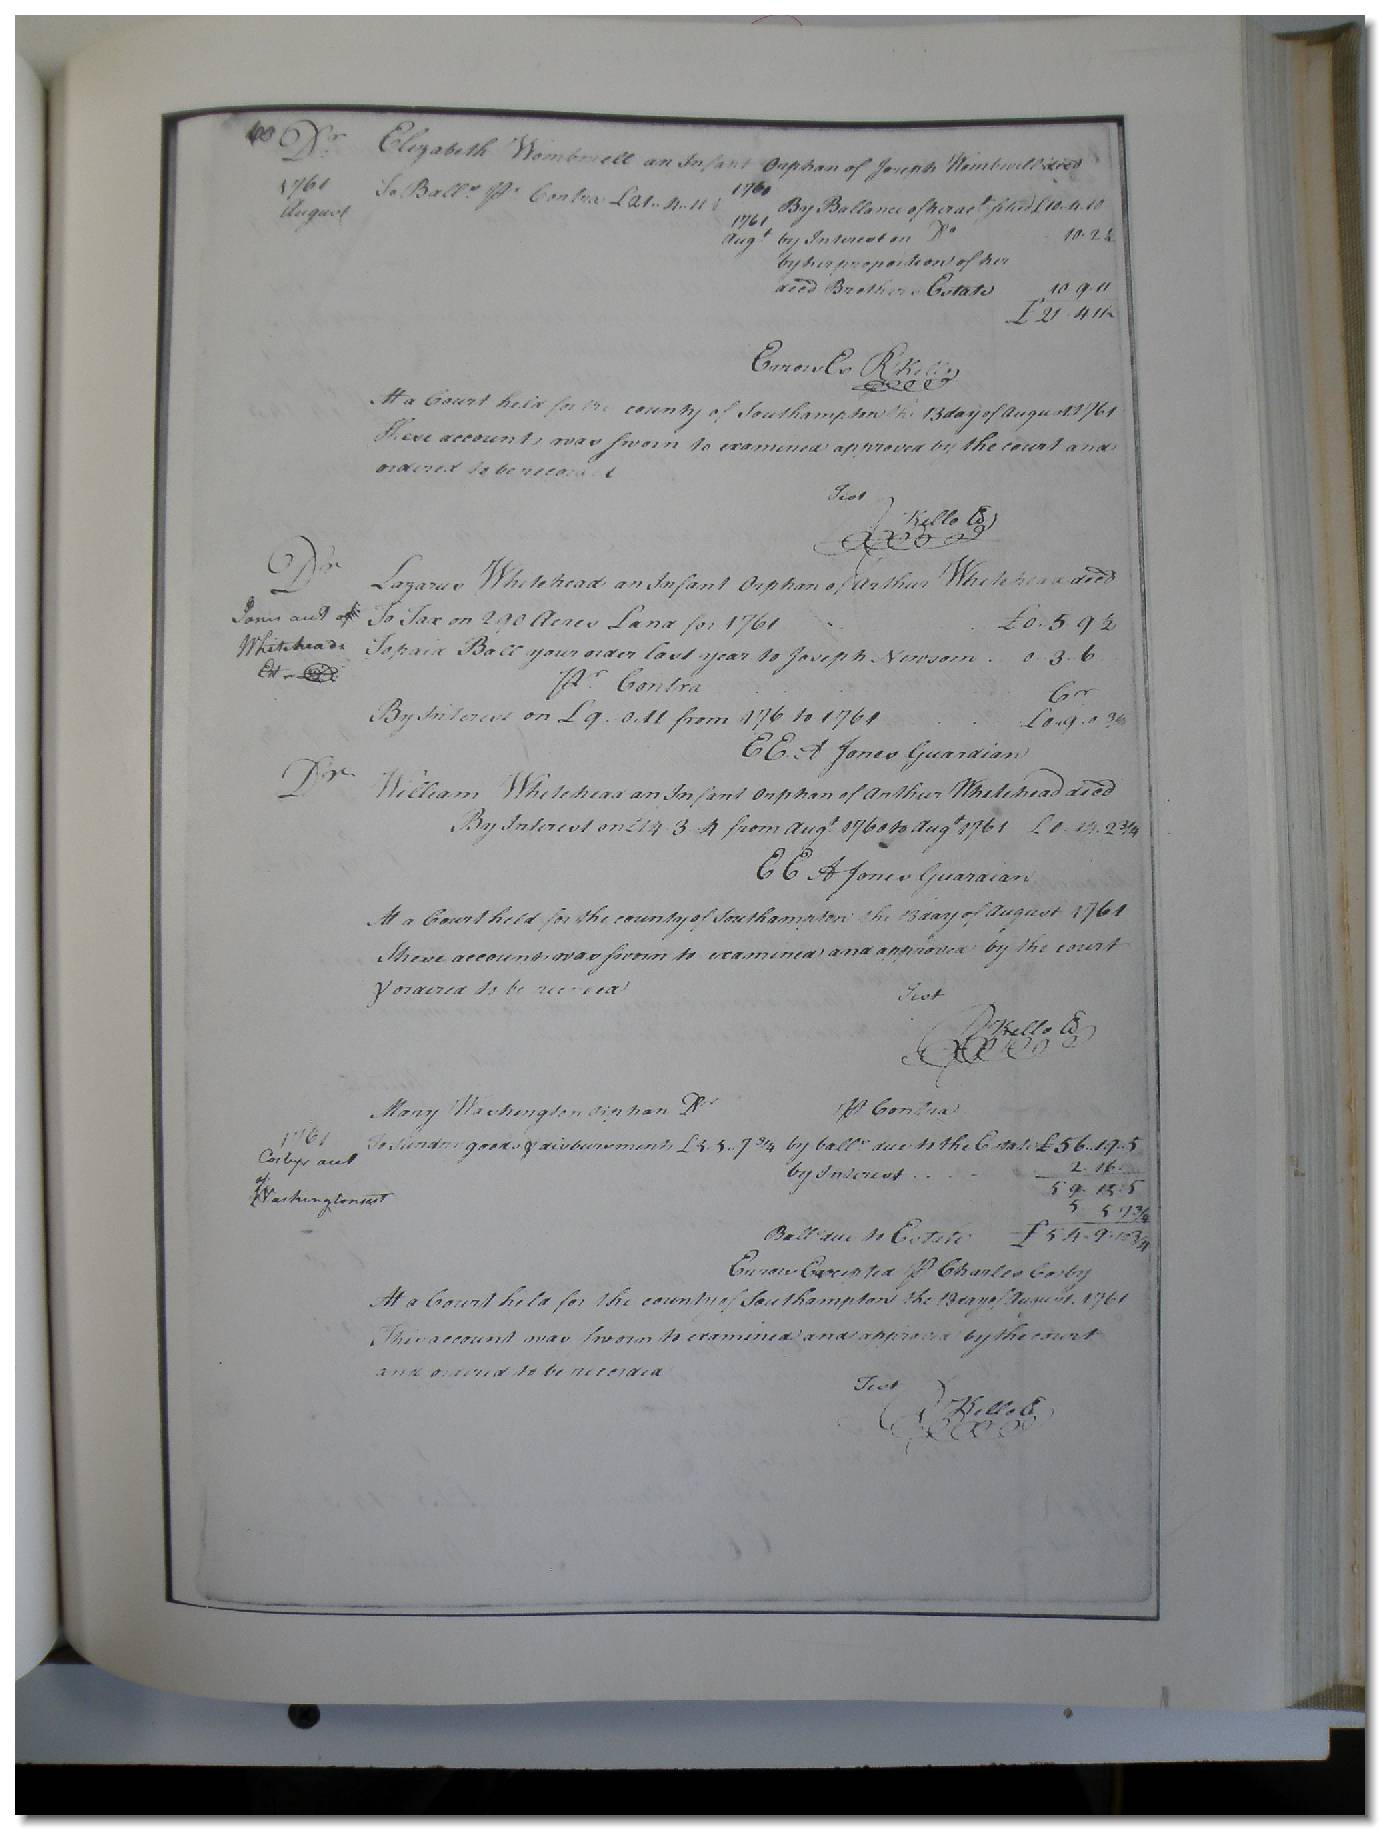 60 Dr Elizabeth Wombwell an Infant Orphan of Joseph Wombwell deced
1761 August To Ball.ce Pr Contra £21..4..11½
1760 By Ballance of her act. £10.4.10
1761 Augt by Interest on Do 10.2½
by her proportion of her
deced Brothers Estate 10 9.11
£21.4.11½
Errors Ex R Kello
At a Court held for the county of Southampton the 13 day of August 1761
These accounts was sworn to examined approved by the court and
ordered to be recorded
Test
Kello
Dr Lazarus Whitehead an Infant Orphan of Arthur Whitehead deced
Jones acct of
Whiteheads
Est
To Tax on 290 Acres Land for 1761 £0.5.9½
To paid Ball your order last year to Joseph Newsom 0.3.6
Pr Contra Cr
By Interest on £9..0.11 from 176 to 1761 £0..9.0
EE A Jones Guardian
Dr William Whitehead an Infant Orphan of Arthur Whitehead deced
By Interest on £14.3.4 from Augt 1760 to Augt 1761 £0..14.2¾
EE A Jones Guardian
At a Court held for the county of Southampton the 13 day of August 1761
These accounts was sworn to examined and approved by the court
& ordered to be recorded
Test
Kello
Mary Washington orphan Dr Pr Contra
1761
Cosbys acct
of
Washingtons est
To sundry goods & disbursments £5.5..7¾ by ball.ce due to the Estate £56..19..5
by Interest 2.16
59.15.5
5 5.7¾
Ball due to Estate £54.9.10¾
Errors Excepted Pr Charles Cosby
At a Court held for the county of Southampton the 13 day of August 1761
This account was sworn to examined and approved by the court
and ordered to be recorded
Test
Kello